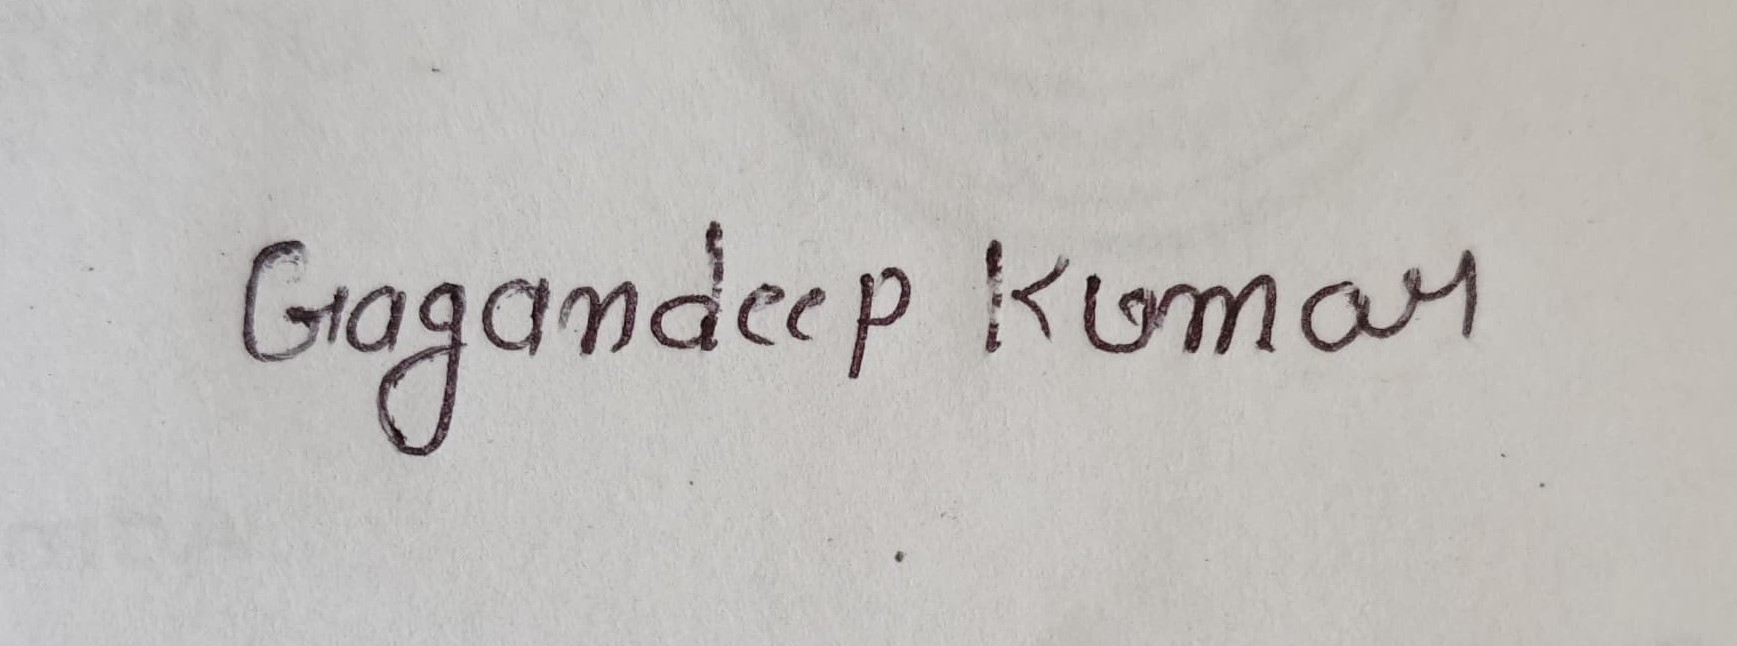 Gagandeep Kumar